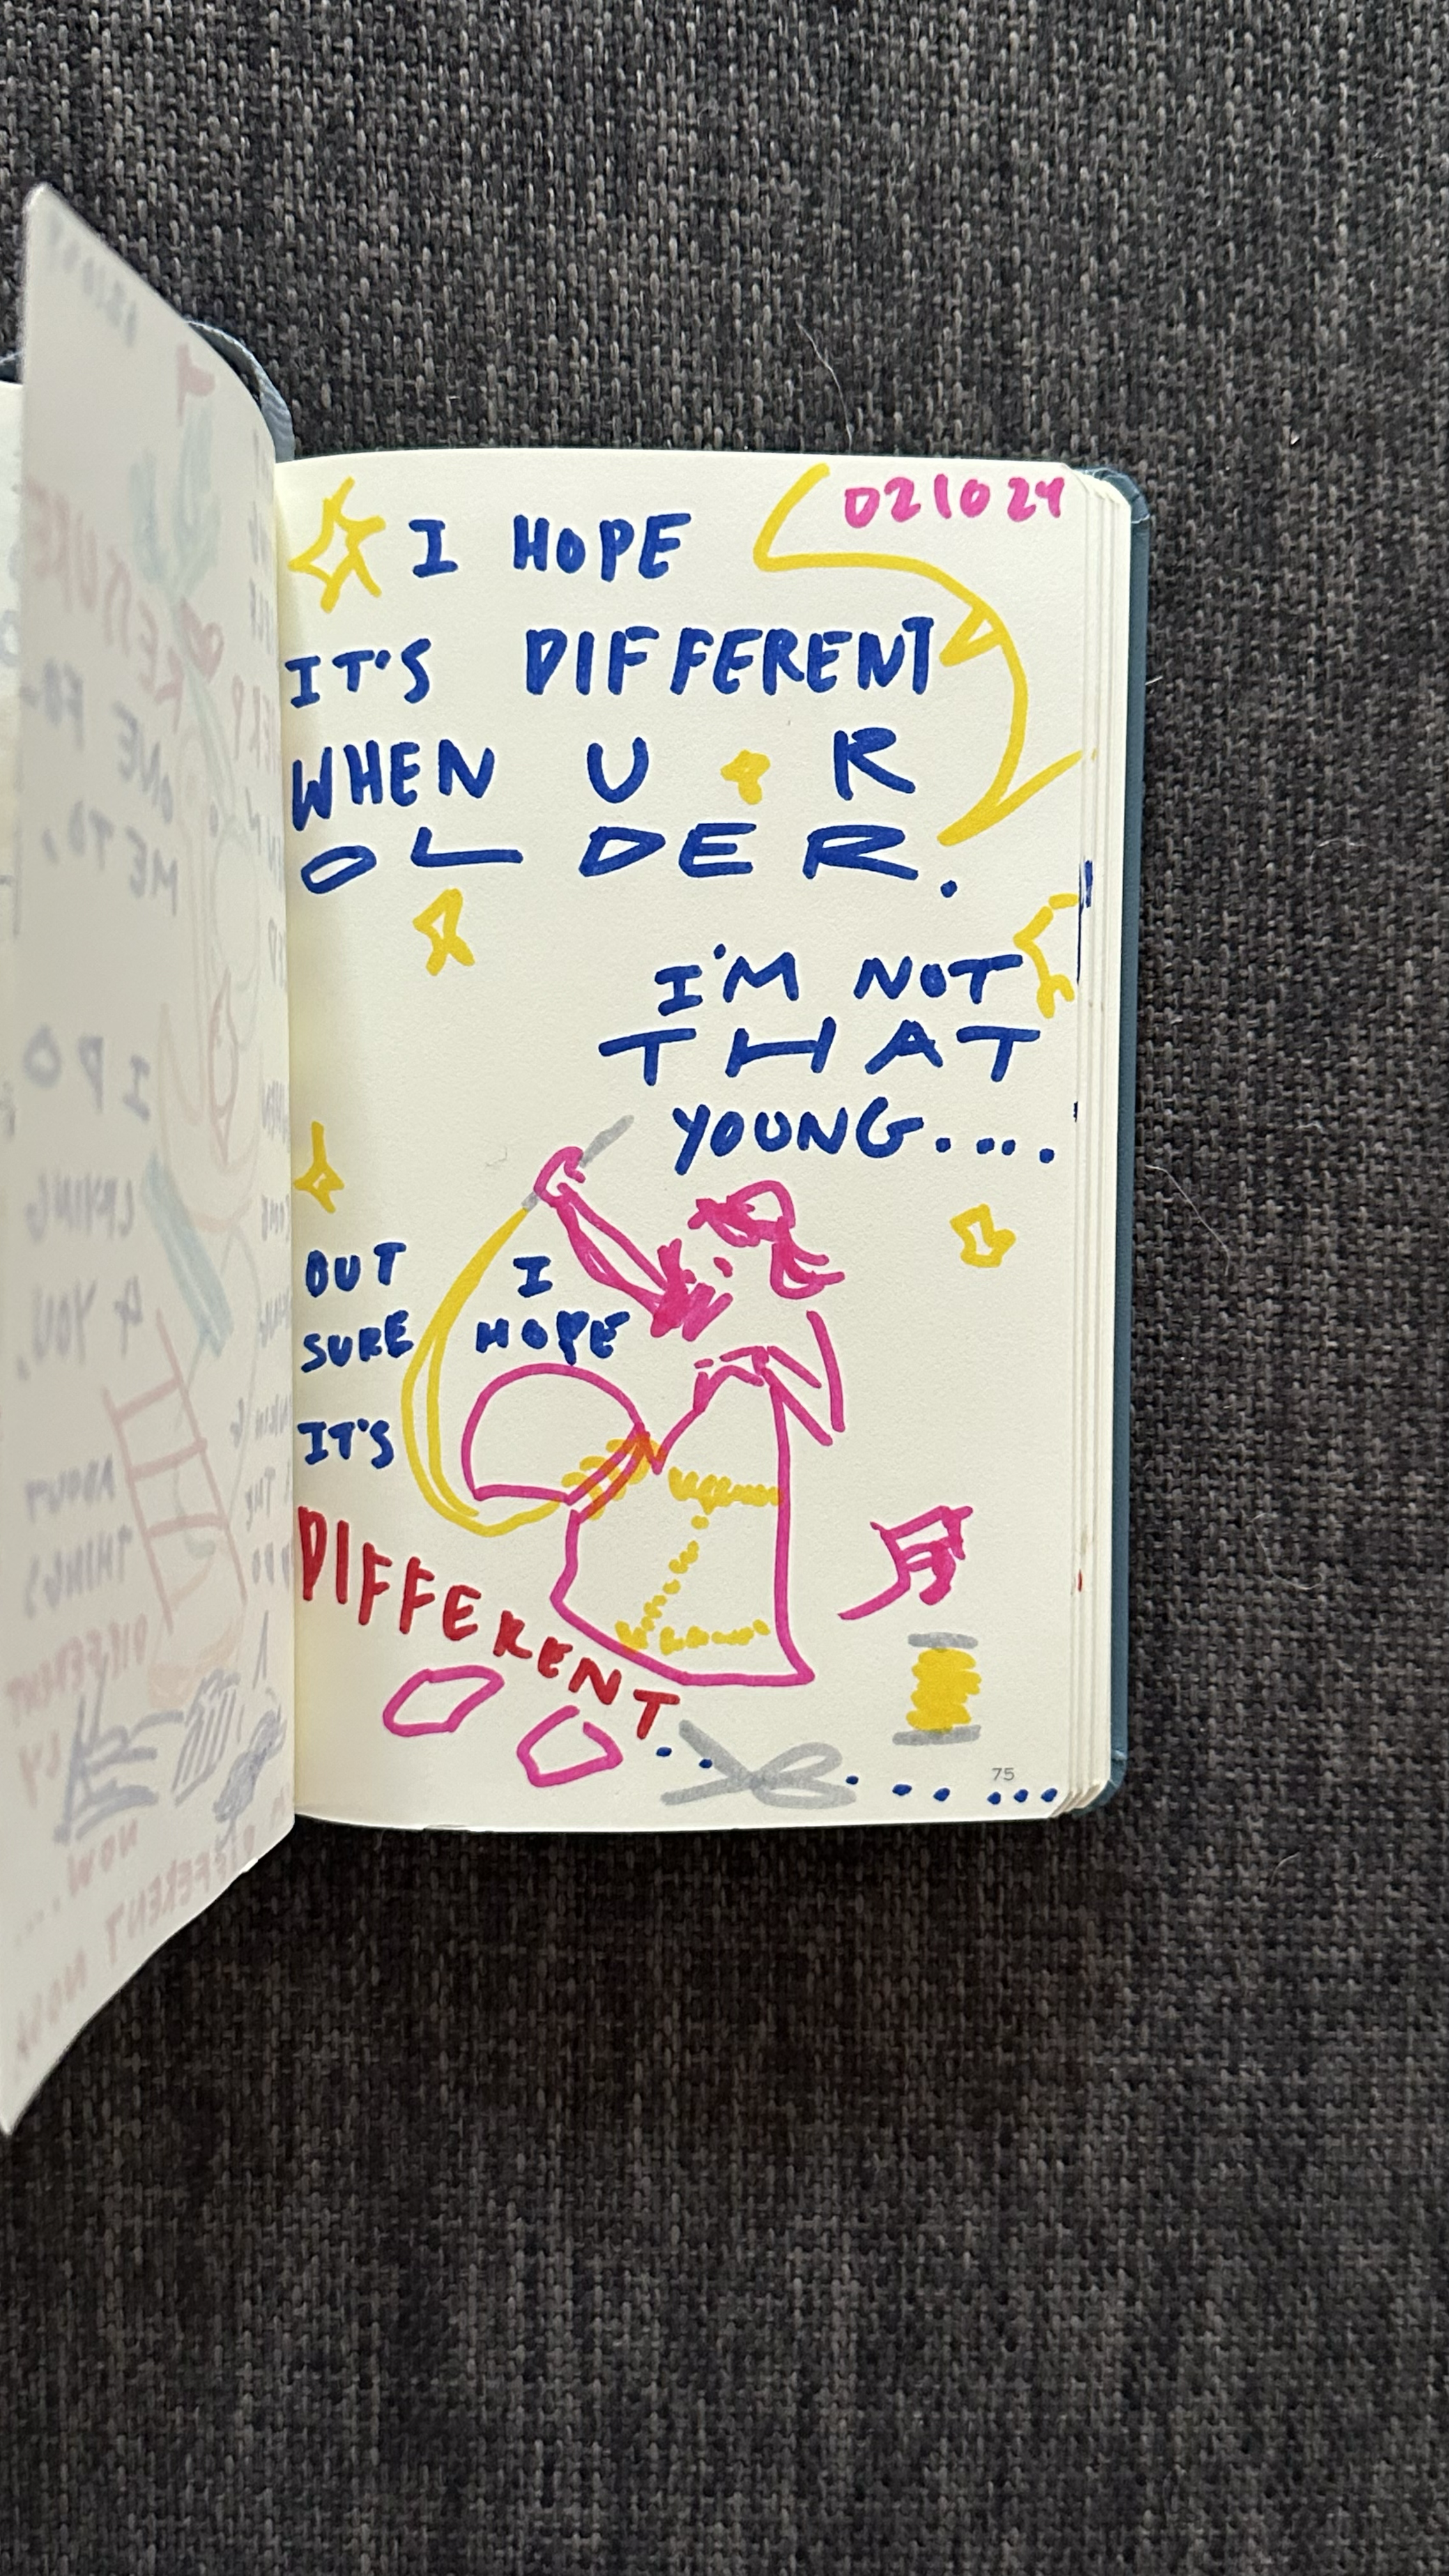 021024
I HOPE
IT'S DIFFERENT
WHEN U R
OLDER.
I'M NOT
THAT
YOUNG....
BUT I
SURE HOPE
IT'S
DIFFERENT
75